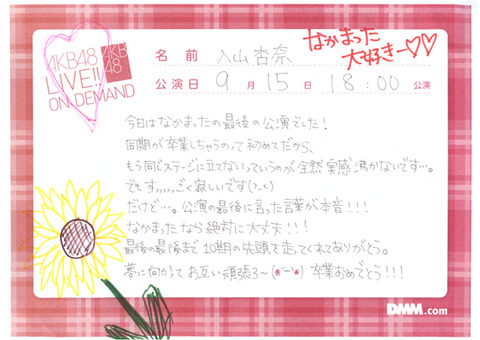 AKB48
LIVE!!
ON DEMAND
AKB
48
名前 入山杏奈
なかまった
大好きー♡♡
公演日 9月15日 18:00 公演
今日はなかまったの最後の公演でした!
同期が卒業しちゃうのって初めてだから、
もう同じステージに立てないっていうのが全然実感沸かないです…。
でもす,,,,,ごく寂しいです(>_<)
だけど…。公演の最後に言った言葉が本音!!!
なかまったなら絶対に大丈夫!!!
最後の最後まで10期の先頭を走ってくれてありがとう。
夢に向かってお互い頑張ろ〜(*˘︶˘*) 卒業おめでとう!!!
DMM.com